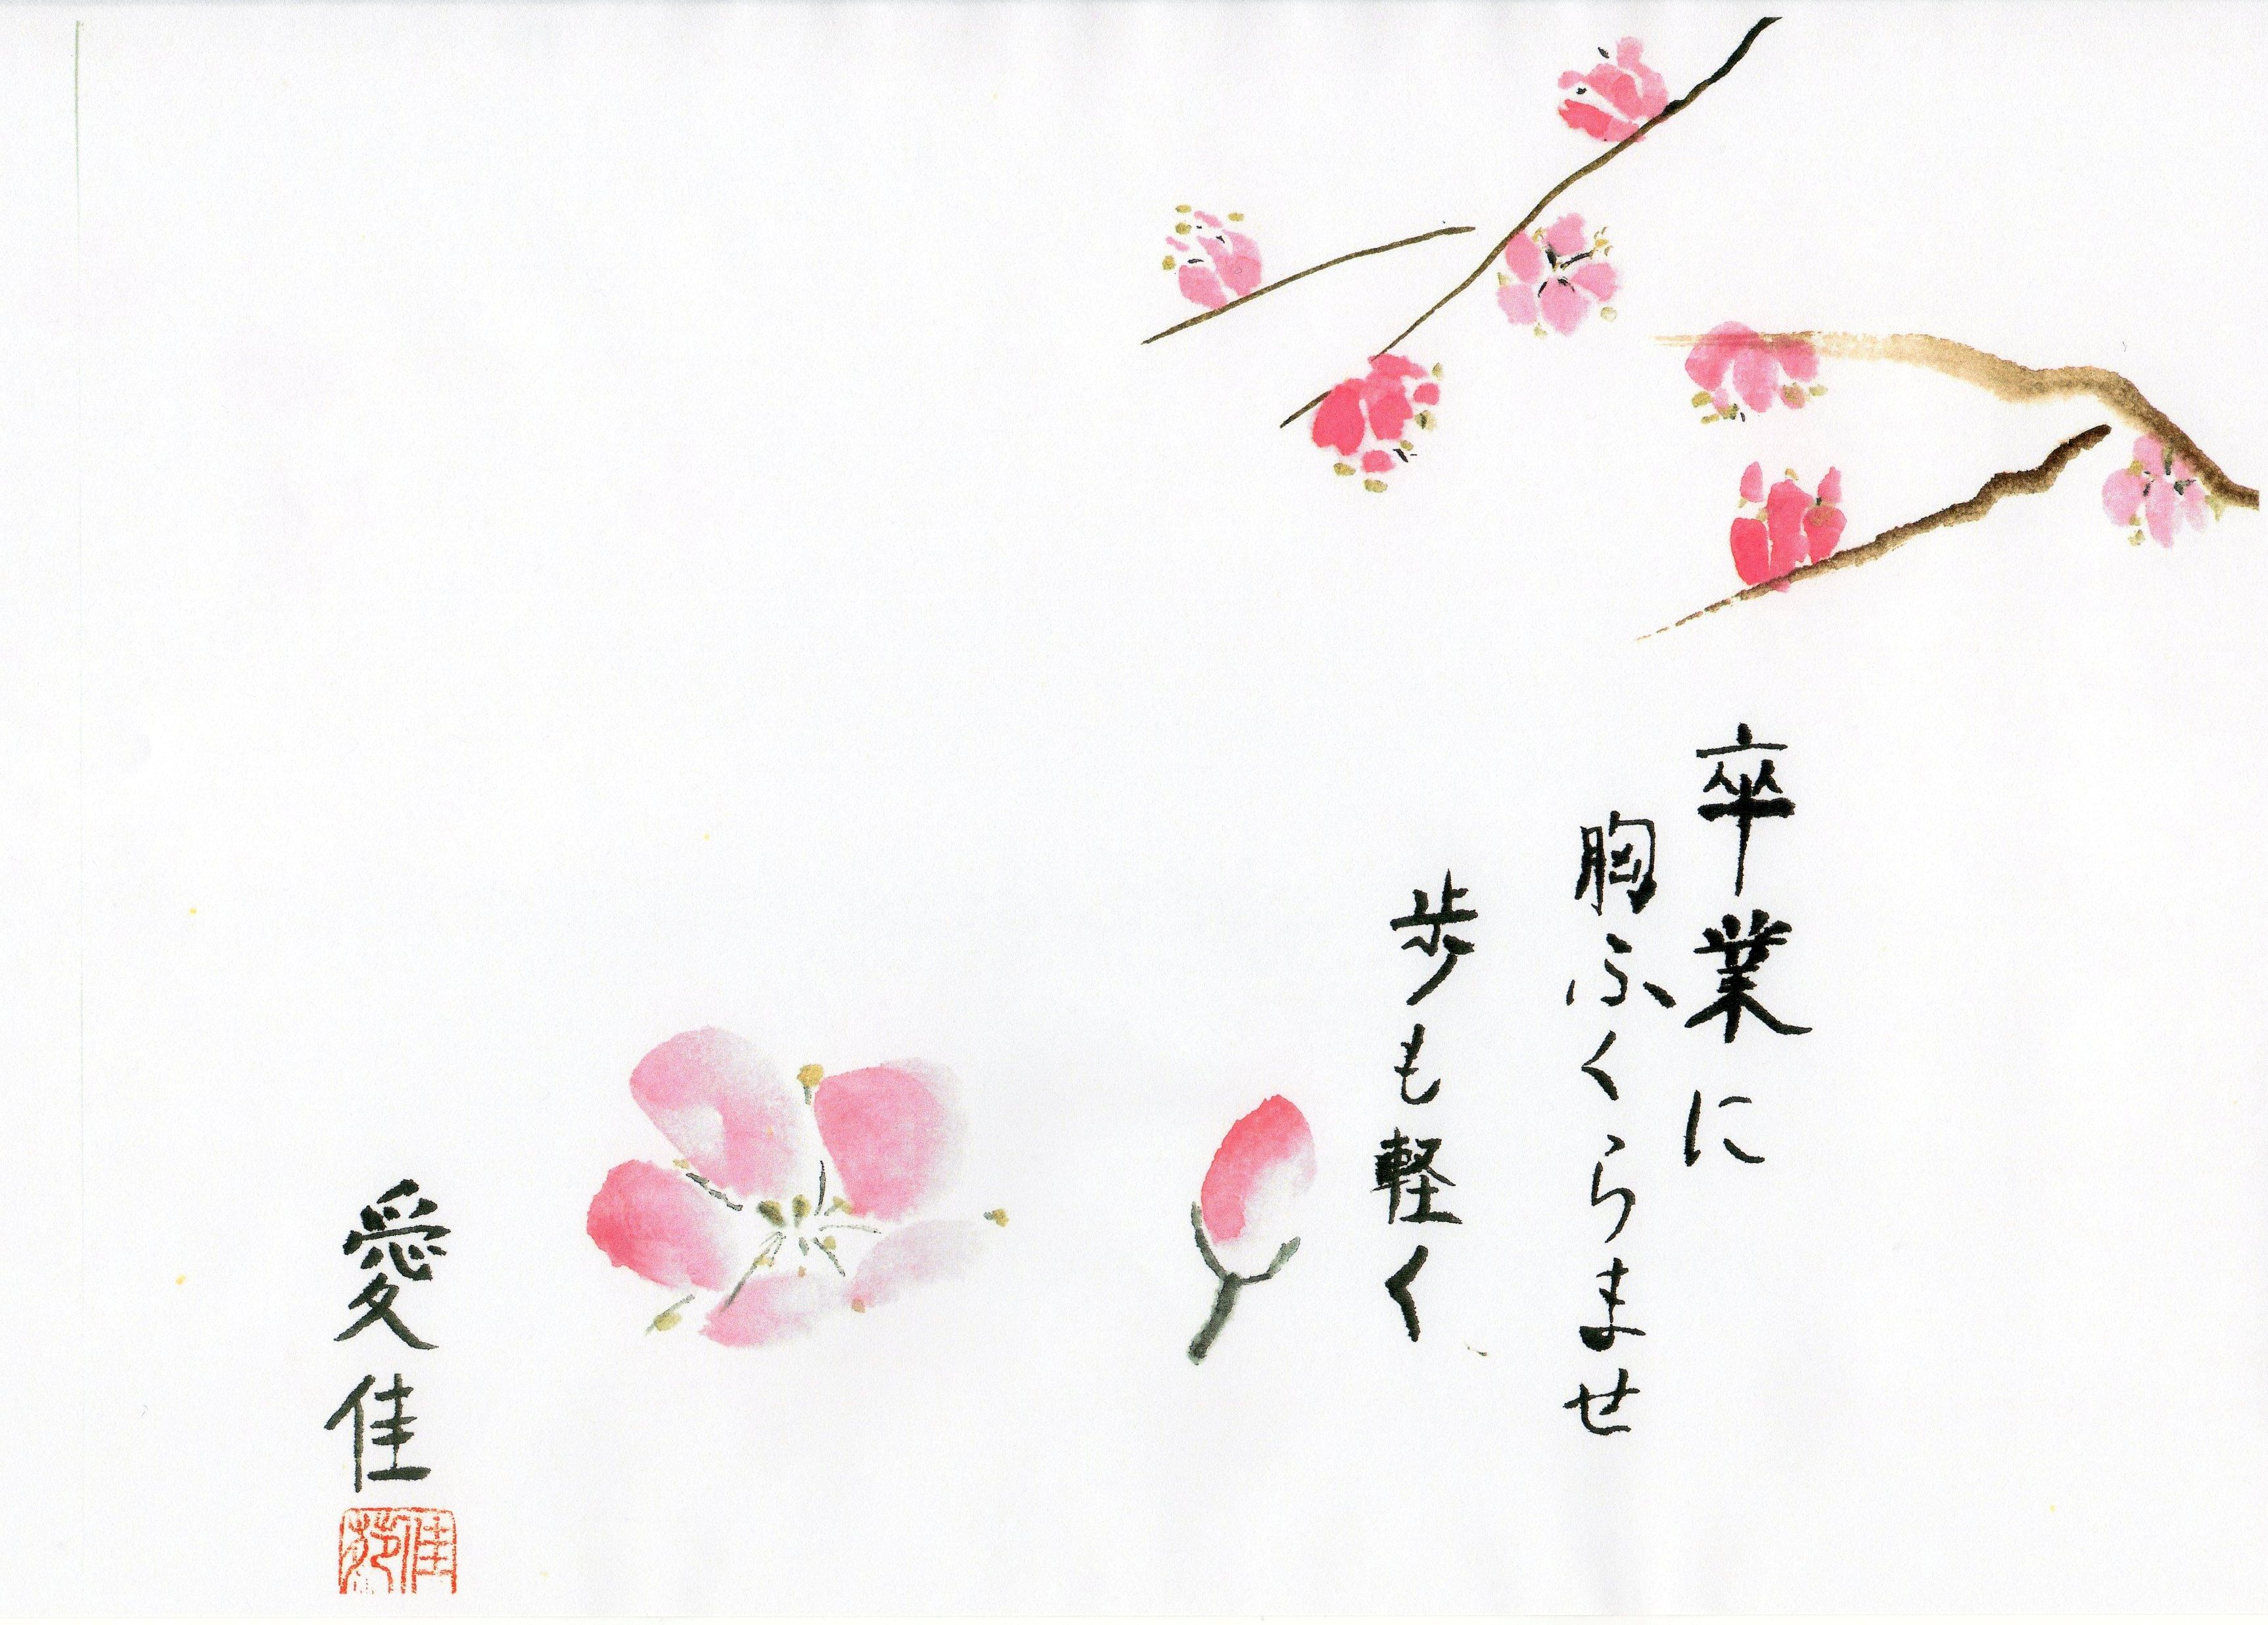 卒業に
胸ふくらませ
歩も軽く
愛佳